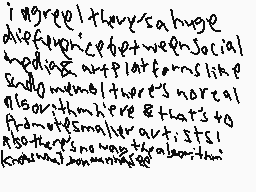 i agree! there's a huge
difference between social
media & art platforms like
sudomemo! there's no real
algorithm here & that's to
promote smaller artists!
also there's no way the algorithm
knows what